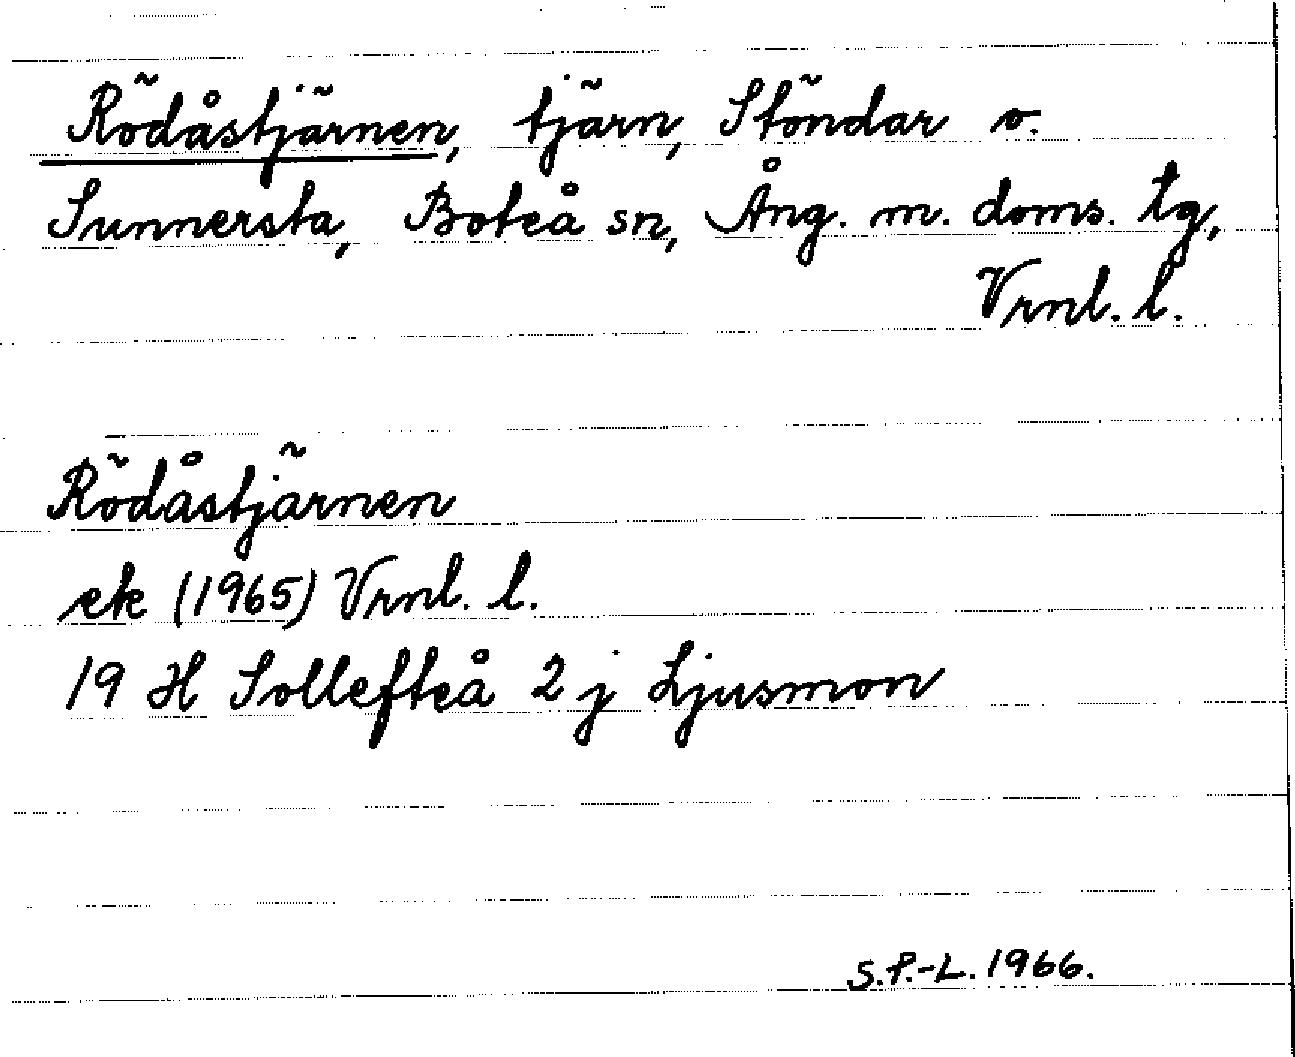 Rödåstjärnen, tjärn, Stöndar o.
Sunnersta, Boteå sn, Ång. m. doms. tg,
Vrnl. l.
Rödåstjärnen
ek (1965) Vrnl. l.
19 H Sollefteå 2 j Ljusmon
S.P.-L. 1966.